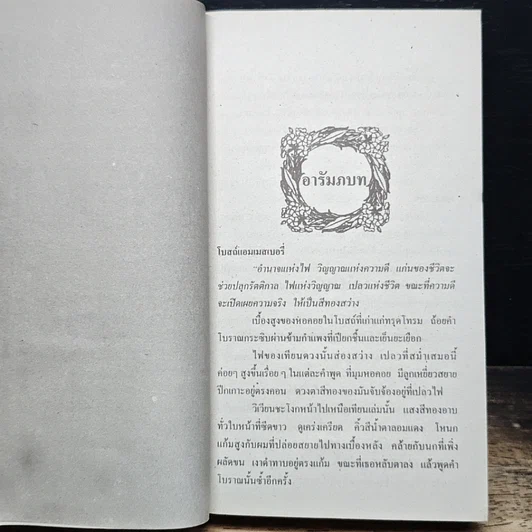 อารัมภบท
โบสถ์แอมเมสเบอรี่
"อำนาจแห่งไฟ วิญญาณแห่งความดี แก่นของชีวิตจะ
ช่วยปลุกรัตติกาล ไฟแห่งวิญญาณ เปลวแห่งชีวิต ขณะที่ความดี
จะเปิดเผยความจริง ให้เป็นสีทองสว่าง
เบื้องสูงของหอคอยในโบสถ์ที่เก่าแก่ทรุดโทรม ถ้อยคำ
โบราณกระซิบผ่านข้ามกำแพงที่เปียกชื้นและเย็นยะเยือก
ไฟของเทียนดวงนั้นส่องสว่าง เปลวที่สม่ำเสมอนี้
ค่อยๆ สูงขึ้นเรื่อยๆ ในแต่ละคำพูด ที่มุมหอคอย มีลูกเหยี่ยวสยาย
ปีกเกาะอยู่ตรงคอน ดวงตาสีทองของมันจับจ้องอยู่ที่เปลวไฟ
วิเวียนชะโงกหน้าไปเหนือเทียนเล่มนั้น แสงสีทองอาบ
ทั่วใบหน้าที่ซีดขาว ดูเคร่งเครียด คิ้วสีน้ำตาลอมแดง โหนก
แก้มสูงกับผมที่ปล่อยสยายไปทางเบื้องหลัง คล้ายกับนกที่เพิ่ง
ผลัดขน เงาดำทาบอยู่ตรงแก้ม ขณะที่เธอหลับตาลง แล้วพูดคำ
โบราณนั้นซ้ำอีกครั้ง